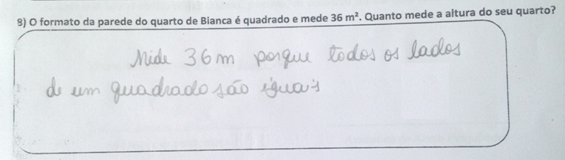 9) O formato da parede do quarto de Bianca é quadrado e mede 36 m². Quanto mede a altura do seu quarto?
Mide 36m porque todos os lados
de um quadrado são iguais